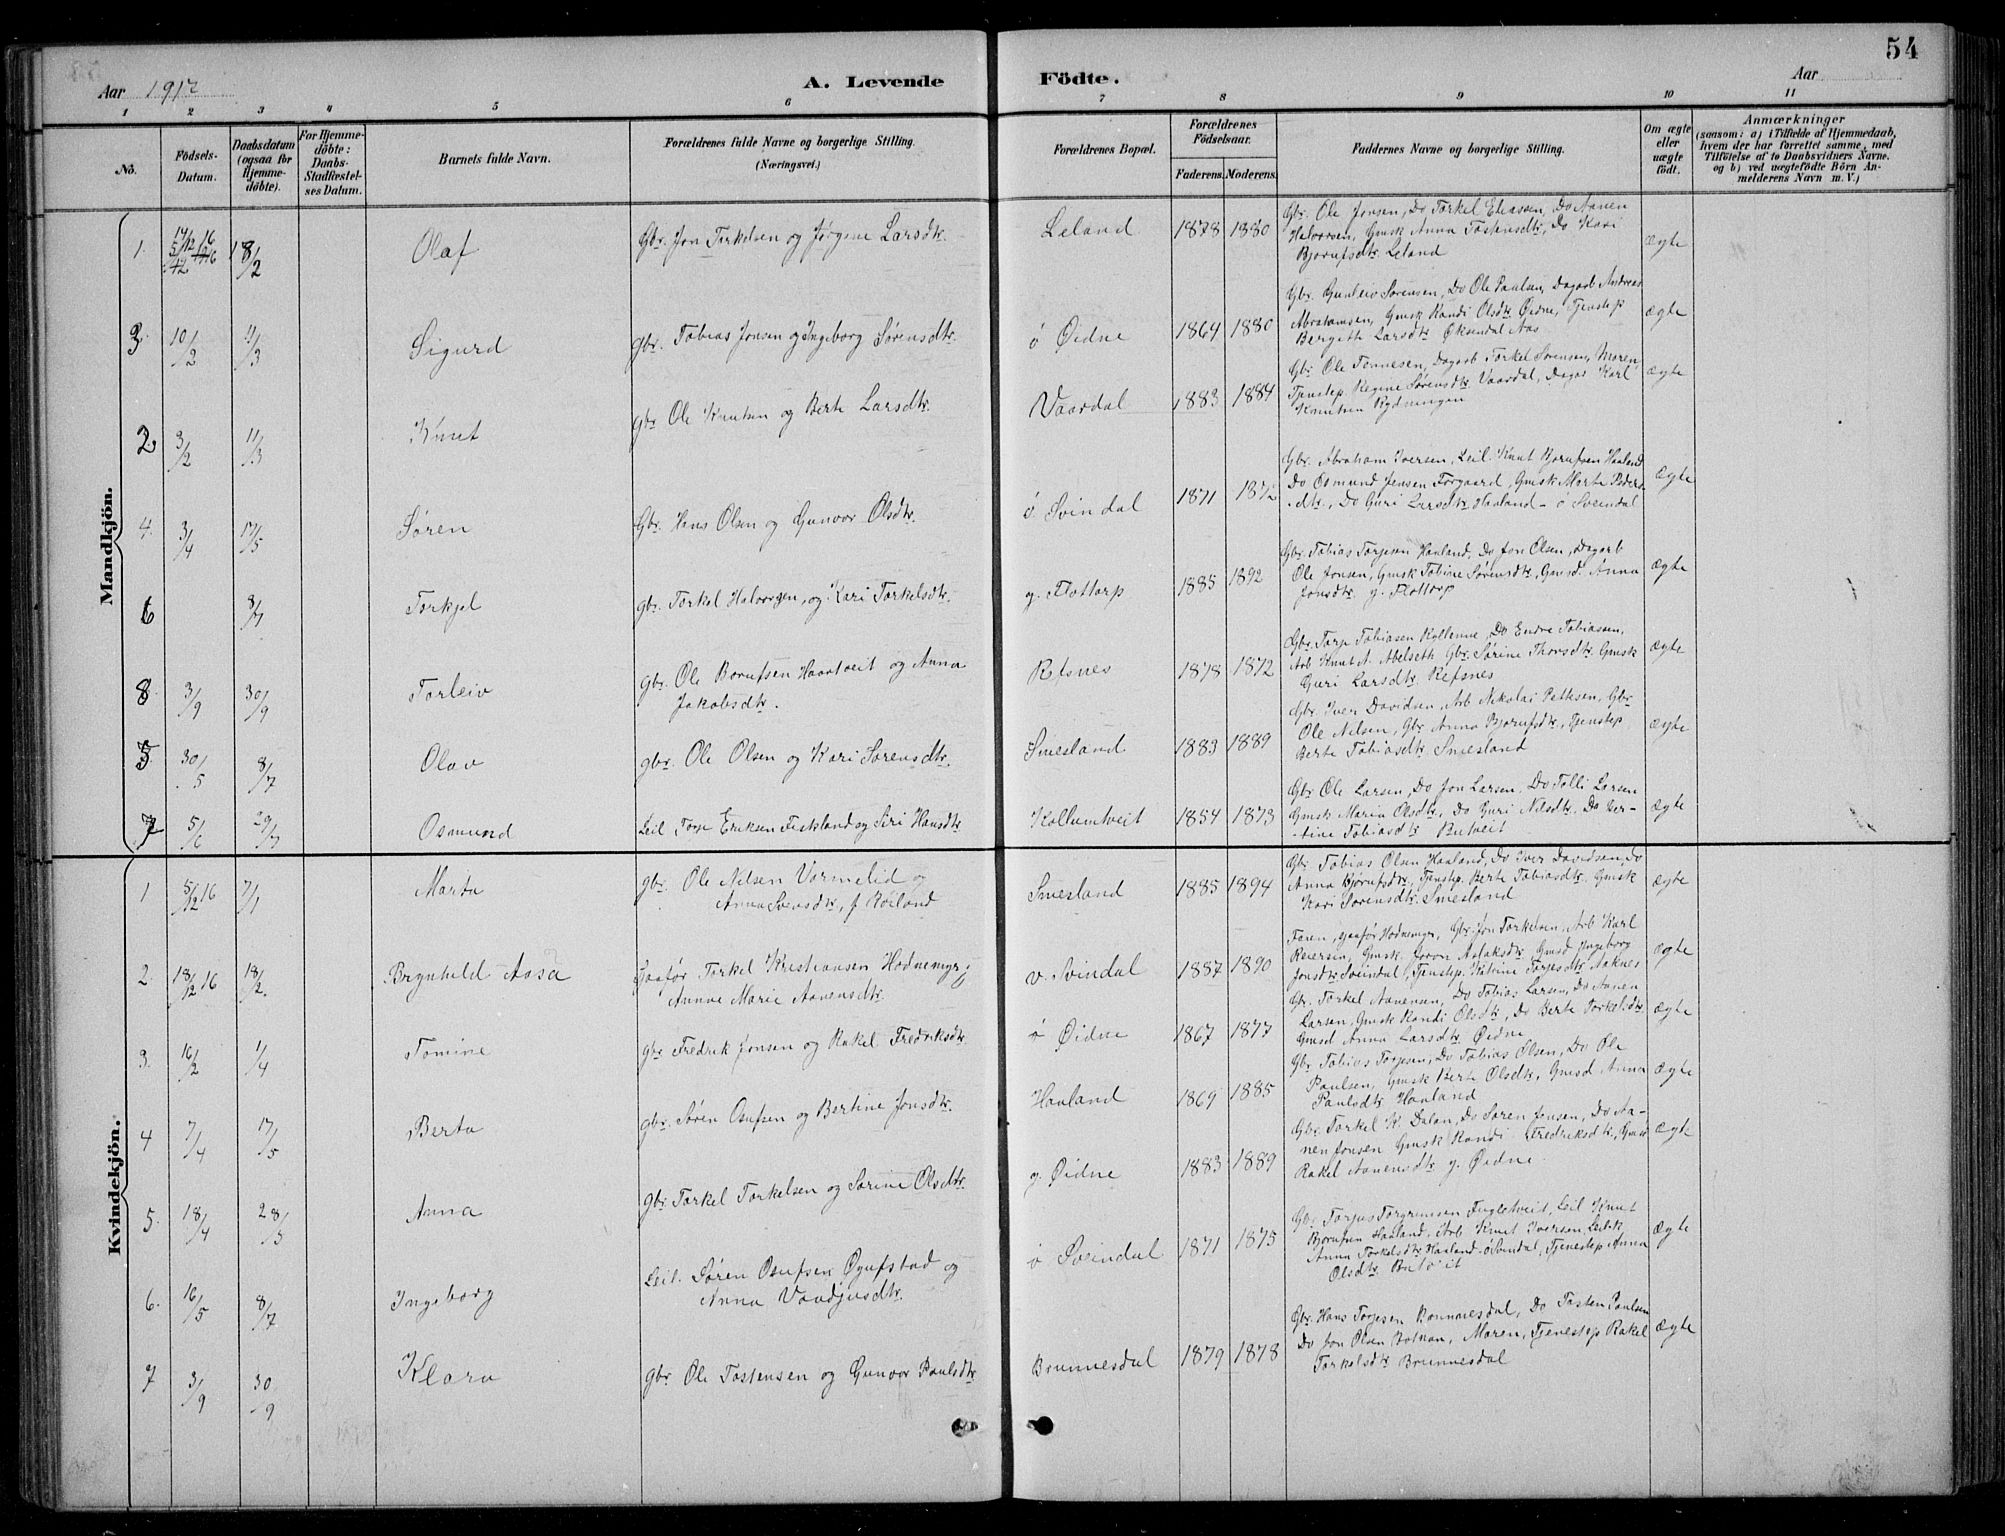 54
Aar 1917
A. Levende Födte.
Aar
1 2 3 4 5 6 7 8 9 10 11
No.
Födsels-Datum.
Daabsdatum (ogsaa for Hjemmedöbte).
For Hjemmedöbte: Daabs-Stadfæstelses Datum.
Barnets fulde Navn.
Forældrenes fulde Navne og borgerlige Stilling. (Næringsvei.)
Forældrenes Bopæl.
Forældrenes Födselsaar. Faderens. Moderens.
Faddernes Navne og borgerlige Stilling.
Om ægte eller uægte födt.
Anmærkninger (saasom: a) i Tilfælde af Hjemmedaab, hvem der har forrettet samme, med Tilföielse af to Daabsvidners Navne, og b) ved uægtefödte Börn Anmelderens Navn m. V.)
Mandkjön.
1. 18/2 Olaf Gbr. Jon Torkelsen og Jørgine Larsdtr. Leland 1878 1880 ægte
Gbr. Ole Jonsen, Do Torkel Eliassen, Do Aanen
Halvorsen, Gmsk Anna Tostensdtr, Do Kari
Bjorufsdtr Leland
3. 10/2 11/3 Sigurd gbr. Tobias Jonsen og Ingeborg Sørensdtr. ö Øidne 1864 1880 ægte
Gbr. Gunleiv Sørensen, Do Ole Paulsen, Dagarb Andreas
Abrahamsen, Gmsk Randi Olsdtr Øidne, Tjenstep
Bergith Larsdtr Øksendal Aas
2. 3/2 11/3 Knut gbr Ole Knutsen og Berte Larsdtr. Vaardal 1883 1884 ægte
Gbr Ole Tønnesen, Dagarb Torkel Sørensen, Moren
Tjenstep Regine Sørensdtr Vaardal, Dagar Karl
Knutsen Rydningen
4. 3/4 17/5 Søren Gbr. Hans Olsen og Gunvor Olsdtr. ö. Svindal 1871 1872 ægte
Gbr. Abraham Iversen, Leil. Knut Bjorufsen Haaland
Do Osmund Jensen Forgaard, Gmsk Marte Peders
dtr., Do Guri Larsdtr Haaland - ö Sveindal
6 8/7 Torkjel gbr. Torkel Halvorsen, og Kari Torkelsdtr. y. Flottorp 1885 1892 ægte
Gbr. Tobias Torjesen Haaland, Do Jon Olsen, Dagarb
Ole Jonsen, Gmsk Tobine Sørensdtr, Gmsd. Anna
Jonsdtr y. Flottorp
8. 3/9 30/9 Torleiv gbr. Ole Borufsen Haatveit og Anna
Jakobsdtr. Refsnes 1878 1872 ægte
Gbr Torje Tobiasen Kyllenne, Do Endre Tobiassen,
Arb Knut A. Abelseth Gbr. Sørine Thorsdtr. Gmsk
Guri Larsdtr Refsnes
5. 30/5 8/7 Olav gbr. Ole Olsen og Kari Sørensdtr. Smesland 1883 1889 ægte
Gbr Iver Davidsen, Arb Nikolai Petersen, Gbr
Ole Nilsen, Gbr Anna Bjorufsdtr, Tjenstep
Berte Tobiasdtr Smesland
7 5/6 29/7 Osmund Leil Torje Eriksen Fiskland og Siri Hansdtr Kollumtveit 1854 1873 ægte
Gbr Ole Larsen, Do Jon Larsen, Do Tolli Larsen
Gmsk Maria Olsdtr, Do Guri Nilsdtr, Do Ber-
tine Tobiasdtr Butveit
Kvindekjön.
1 5/12 16 7/1 Marta gbr Ole Nilsen Varmelid og
Anna Svensdtr, f Røiland Smesland 1885 1894 ægte
Gbr Tobias Olsen Haaland, Do Iver Davidsen, Do
Anna Bjørufsdtr, Tjenstep. Berte Tobiasdtr, Gmsk
Kari Sørensdtr Smesland
2. 18/12 16 18/2. Brynhild Aasa Snafør Torkel Kristiansen Hodnemyr og
Annne Marie Aanensdtr. v. Svindal 1887 1890 ægte
Faren, Hodnemyr, Gbr. Jon Torkelsen, Arb Karl
Reiersen, Gmsk. Joron Aslaksdtr Gmsd Ingeborg
Jonsdtr Sveindal, Tjenstep. Katrine Torjesdtr Aaknes
3. 16/2 1/4 Tomine gbr Fredrik Jonsen og Rakel Fredriksdtr ö Øidne 1867 1877 ægte
Gbr. Torkel Aanensen, Do Tobias Larsen, Do Aanen
Larsen, Gmsk Randi Olsdtr, Do Berte Torkelsdtr
Gmsd Anna Larsdtr Øidne
4 7/4 17/5 Berta gbr. Søren Osufsen og Bertine Jonsdtr. Haaland 1869 1885 ægte
Gbr. Tobias Torjesen, Do Tobias Olsen, Do Ole
Paulsen, Gmsk Berte Olsdtr, Gmsd Anna
Paulsdtr Haaland
5. 18/4 28/5 Anna gbr Torkel Torkelsen og Sørine Olsdtr. y. Øidne 1883 1889 ægte
Gbr Torkel K. Dalan, Do Søren Jensen, Do Aa-
nen Jonsen Gmsk Randi Fredriksdtr, Gmsd
Rakel Aanensdtr y. Øidne.
6. 16/5 8/7 Ingeborg Leil. Søren Osufsen Øyufstad og
Anna Vaadjusdtr. ö Sveindal 1871 1875 ægte
Gbr Torjus Torgrimsen Fugletveit, Leil Knut
Bjorufsen Haaland, Arb Knut Iversen, Leilk
Anna Torkelsdtr Haaland - ö Svindal, Tjenestep Anna
Olsdtr. Butveit
7 3/9 30/9 Klara gbr Ole Tostensen og Gunvor Paulsdtr Brunnesdal 1879 1878 ægte
Gbr. Hans Torjesen Bonnnesdal, Do Tosten Paulsen
Do Jon Olsen, Moren, Tjenestep Rakel
Torkelsdtr Brunnesdal